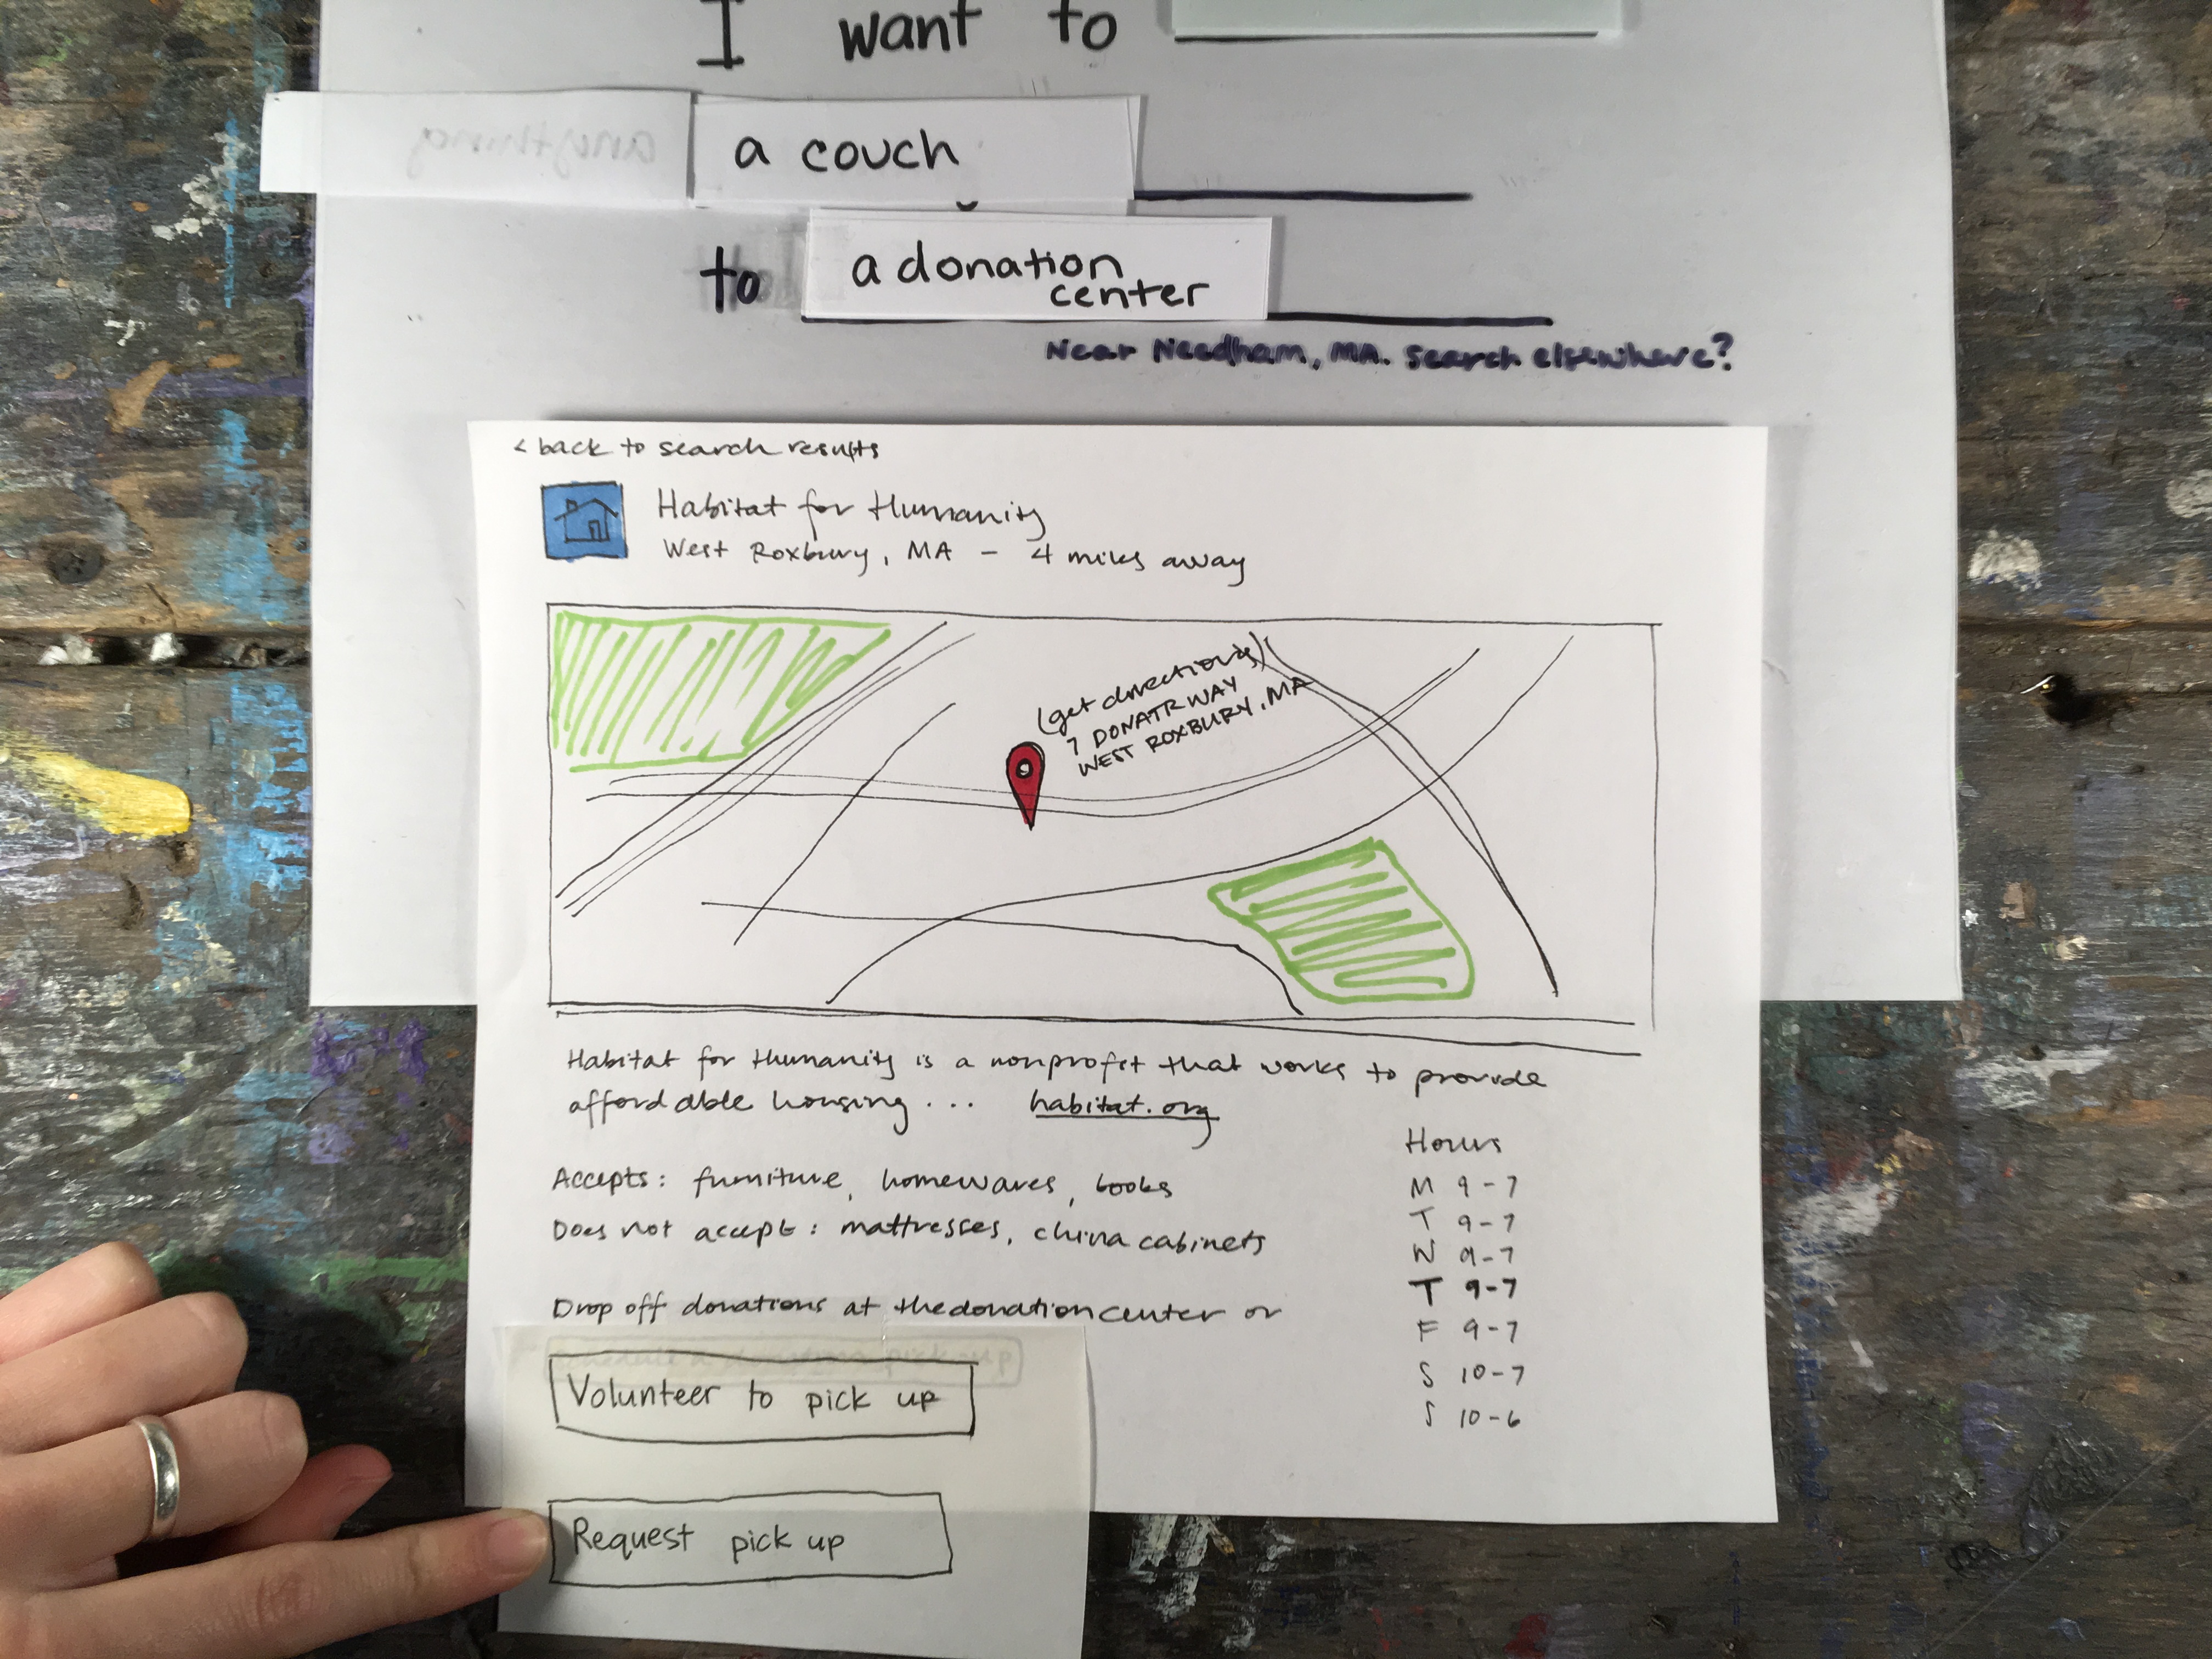 I want to
anything
a couch
to a donation
center
Near Needham, MA. Search elsewhere?
< back to search results
Habitat for Humanity
West Roxbury, MA - 4 miles away
(get directions)
7 DONATR WAY
WEST ROXBURY, MA
Habitat for Humanity is a nonprofit that works to provide
affordable housing... habitat.org
Accepts: furniture, homewares, books
Does not accept: mattresses, china cabinets
Drop off donations at the donation center or
schedule a donation pick-up
Volunteer to pick up
Request pick up
Hours
M 9-7
T 9-7
W 9-7
T 9-7
F 9-7
S 10-7
S 10-6